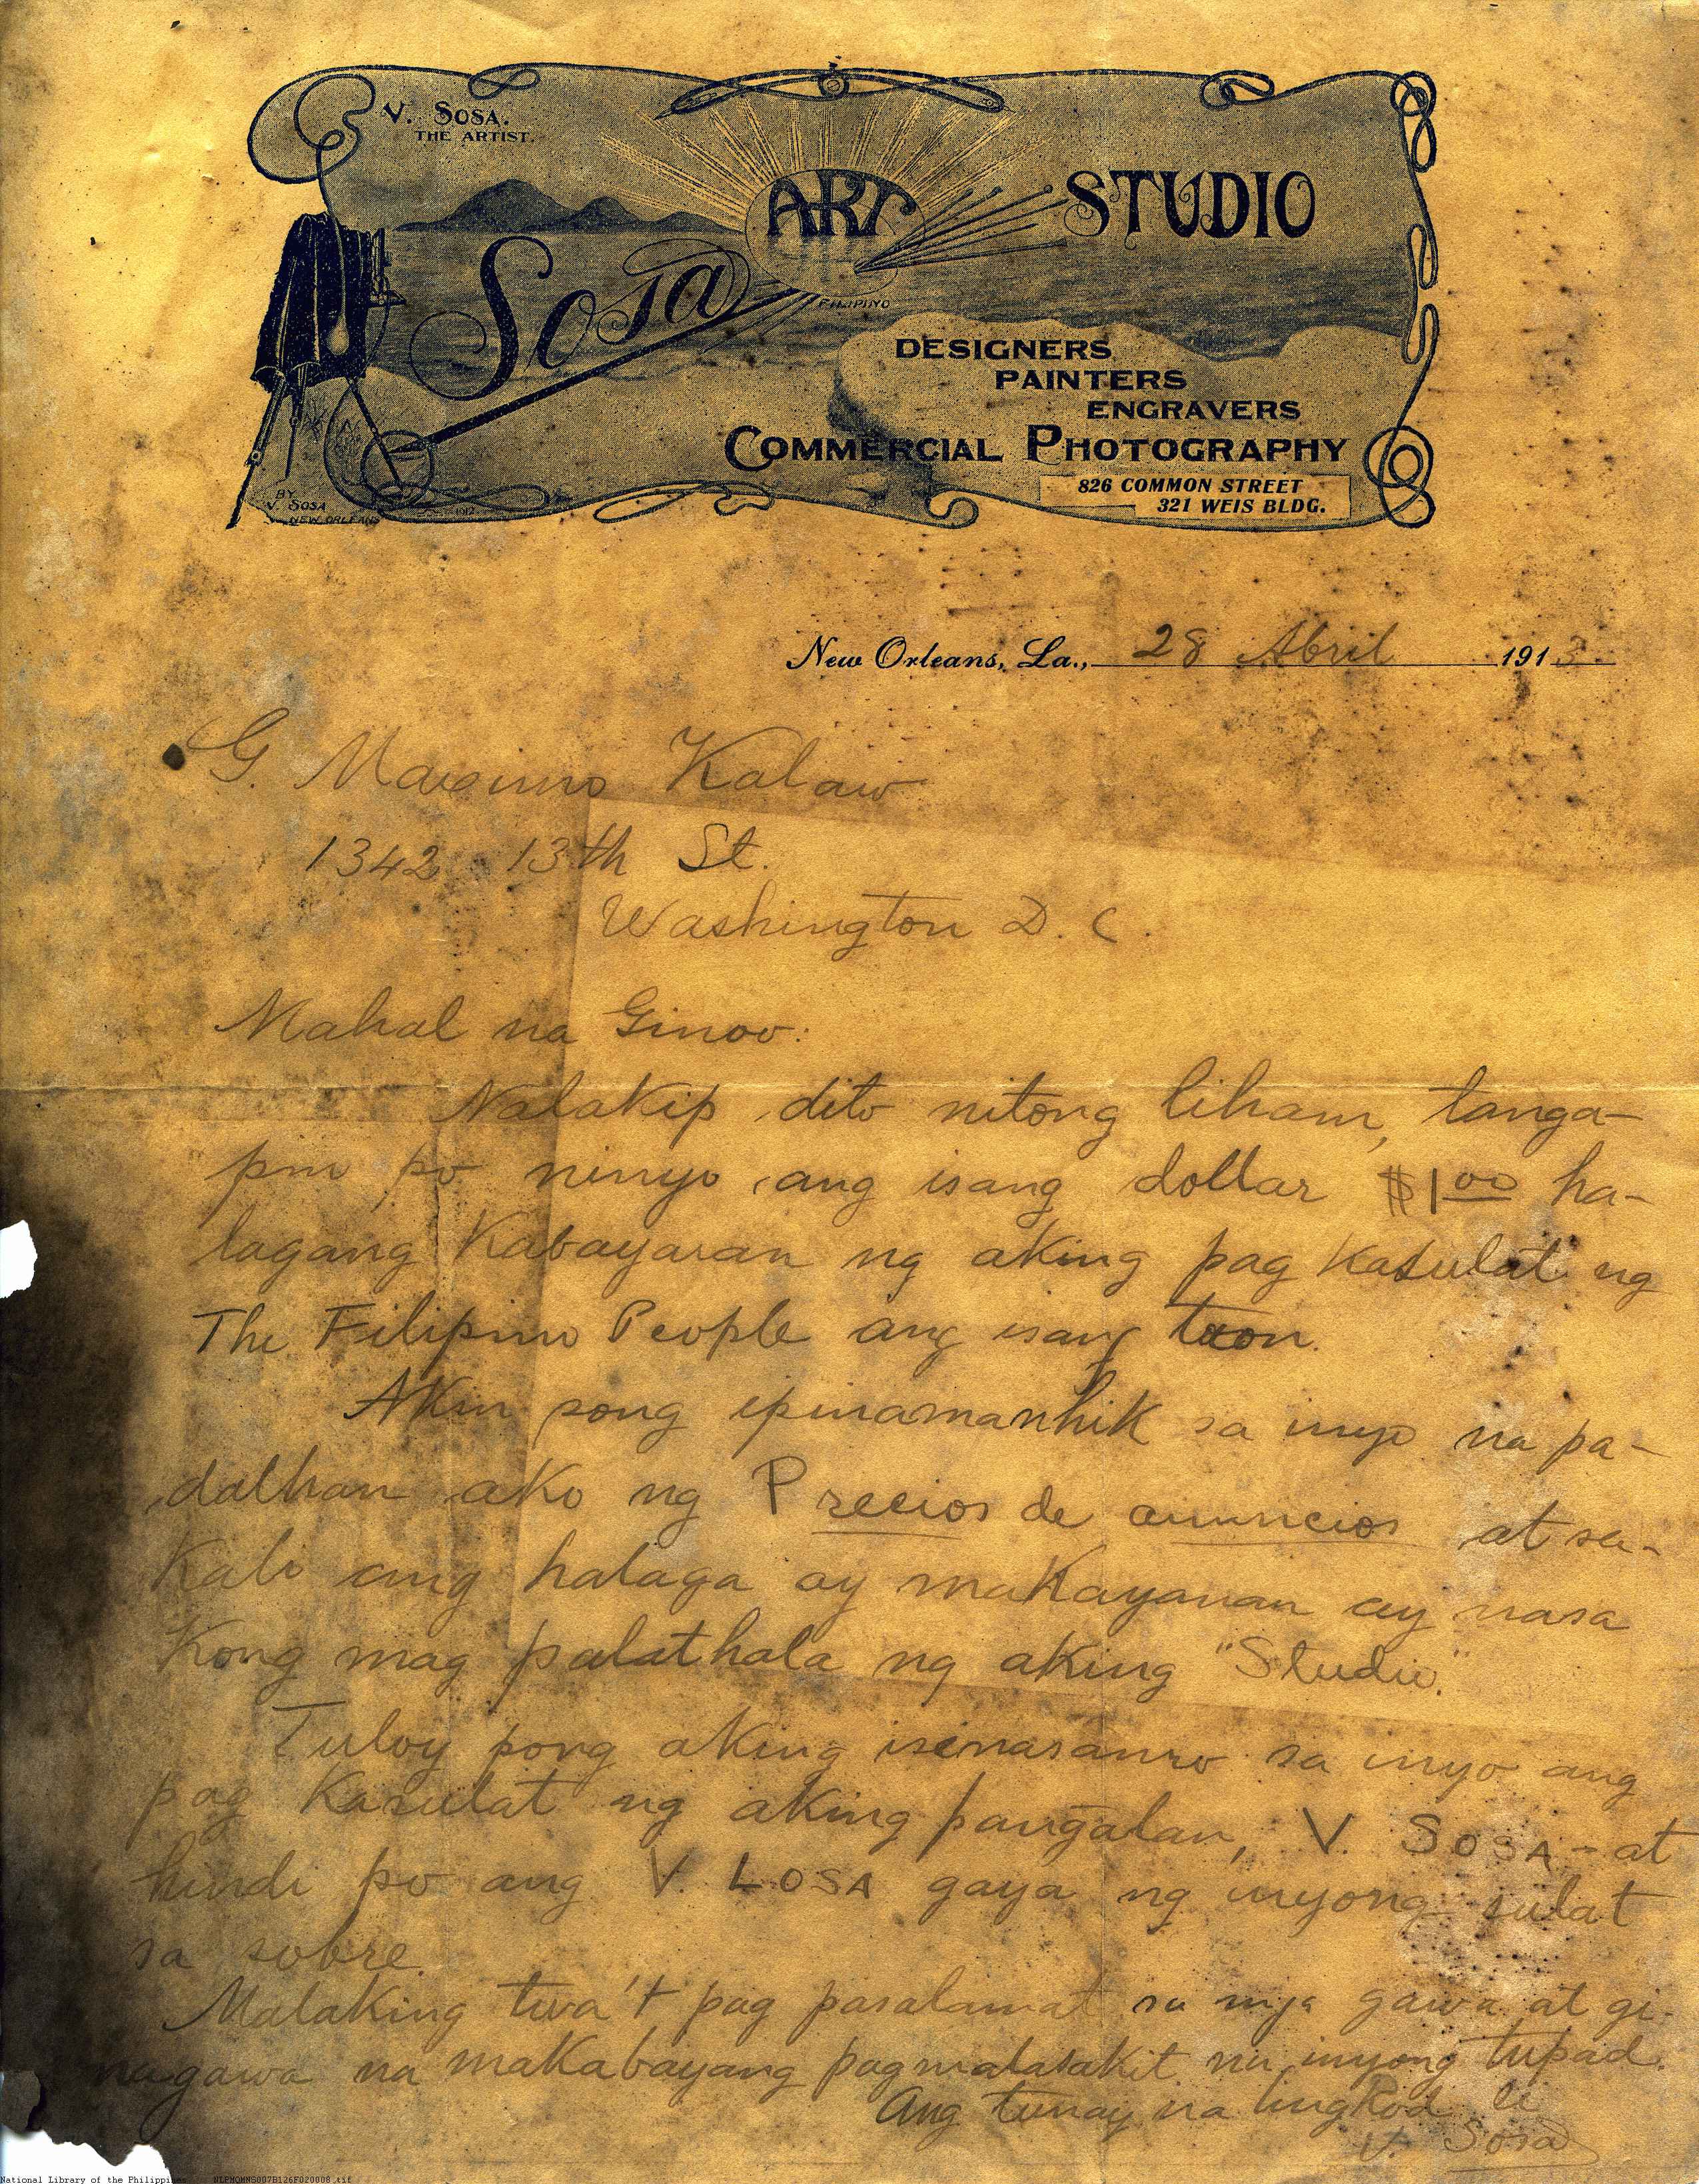 V. SOSA.
THE ARTIST.
Sosa ART STUDIO
FILIPINO
DESIGNERS
PAINTERS
ENGRAVERS
COMMERCIAL PHOTOGRAPHY
826 COMMON STREET
321 WEIS BLDG.
BY
V. SOSA
NEW ORLEANS
1912
New Orleans, La., 28 Abril 1913.
G. Maximo Kalaw
1342 13th St.
Washington D. C.
Mahal na Ginoo:
Nalakip dito nitong liham, tanga-
pin po ninyo ang isang dollar $1.00 ha-
lagang Kabayaran ng aking pag Kasulat ng
The Filipino People ang isang taon.
Akin pong ipinamanhik sa inyo na pa-
dalhan ako ng Precios de anuncios at sa-
Kali ang halaga ay maKayanan ay nasa
Kong mag palathala ng aking "Studio."
Tuloy pong aking isinasamo sa inyo ang
pag Kasulat ng aking pangalan, V. SOSA - at
hindi po ang V. LOSA gaya ng inyong sulat
sa sobre.
Malaking tua't pag pasalamat sa mga gawa at gi-
nagawa na maKabayang pagmalasakit na inyong tupad.
Ang tunay na lingKod
V. Sosa
National Library of the Philippines NLPMQMNS007B126F020008.tif